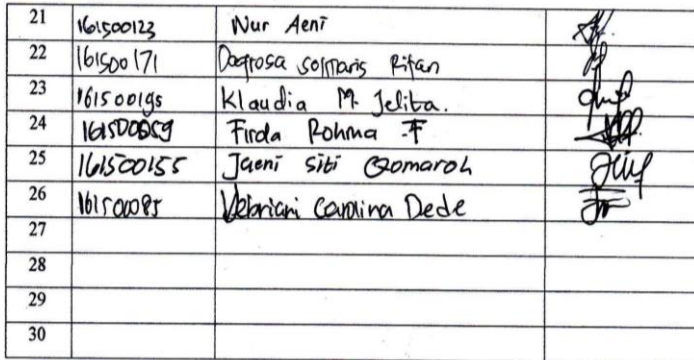 21 161500123 Nur Aeni
22 161500171 Dagrosa Solmaris Rifan
23 161500195 Klaudia M. Jelita.
24 161500059 Firda Rohma F
25 161500155 Jaeni Siti Qomaroh
26 161500085 Vebriani Carolina Dede
27
28
29
30